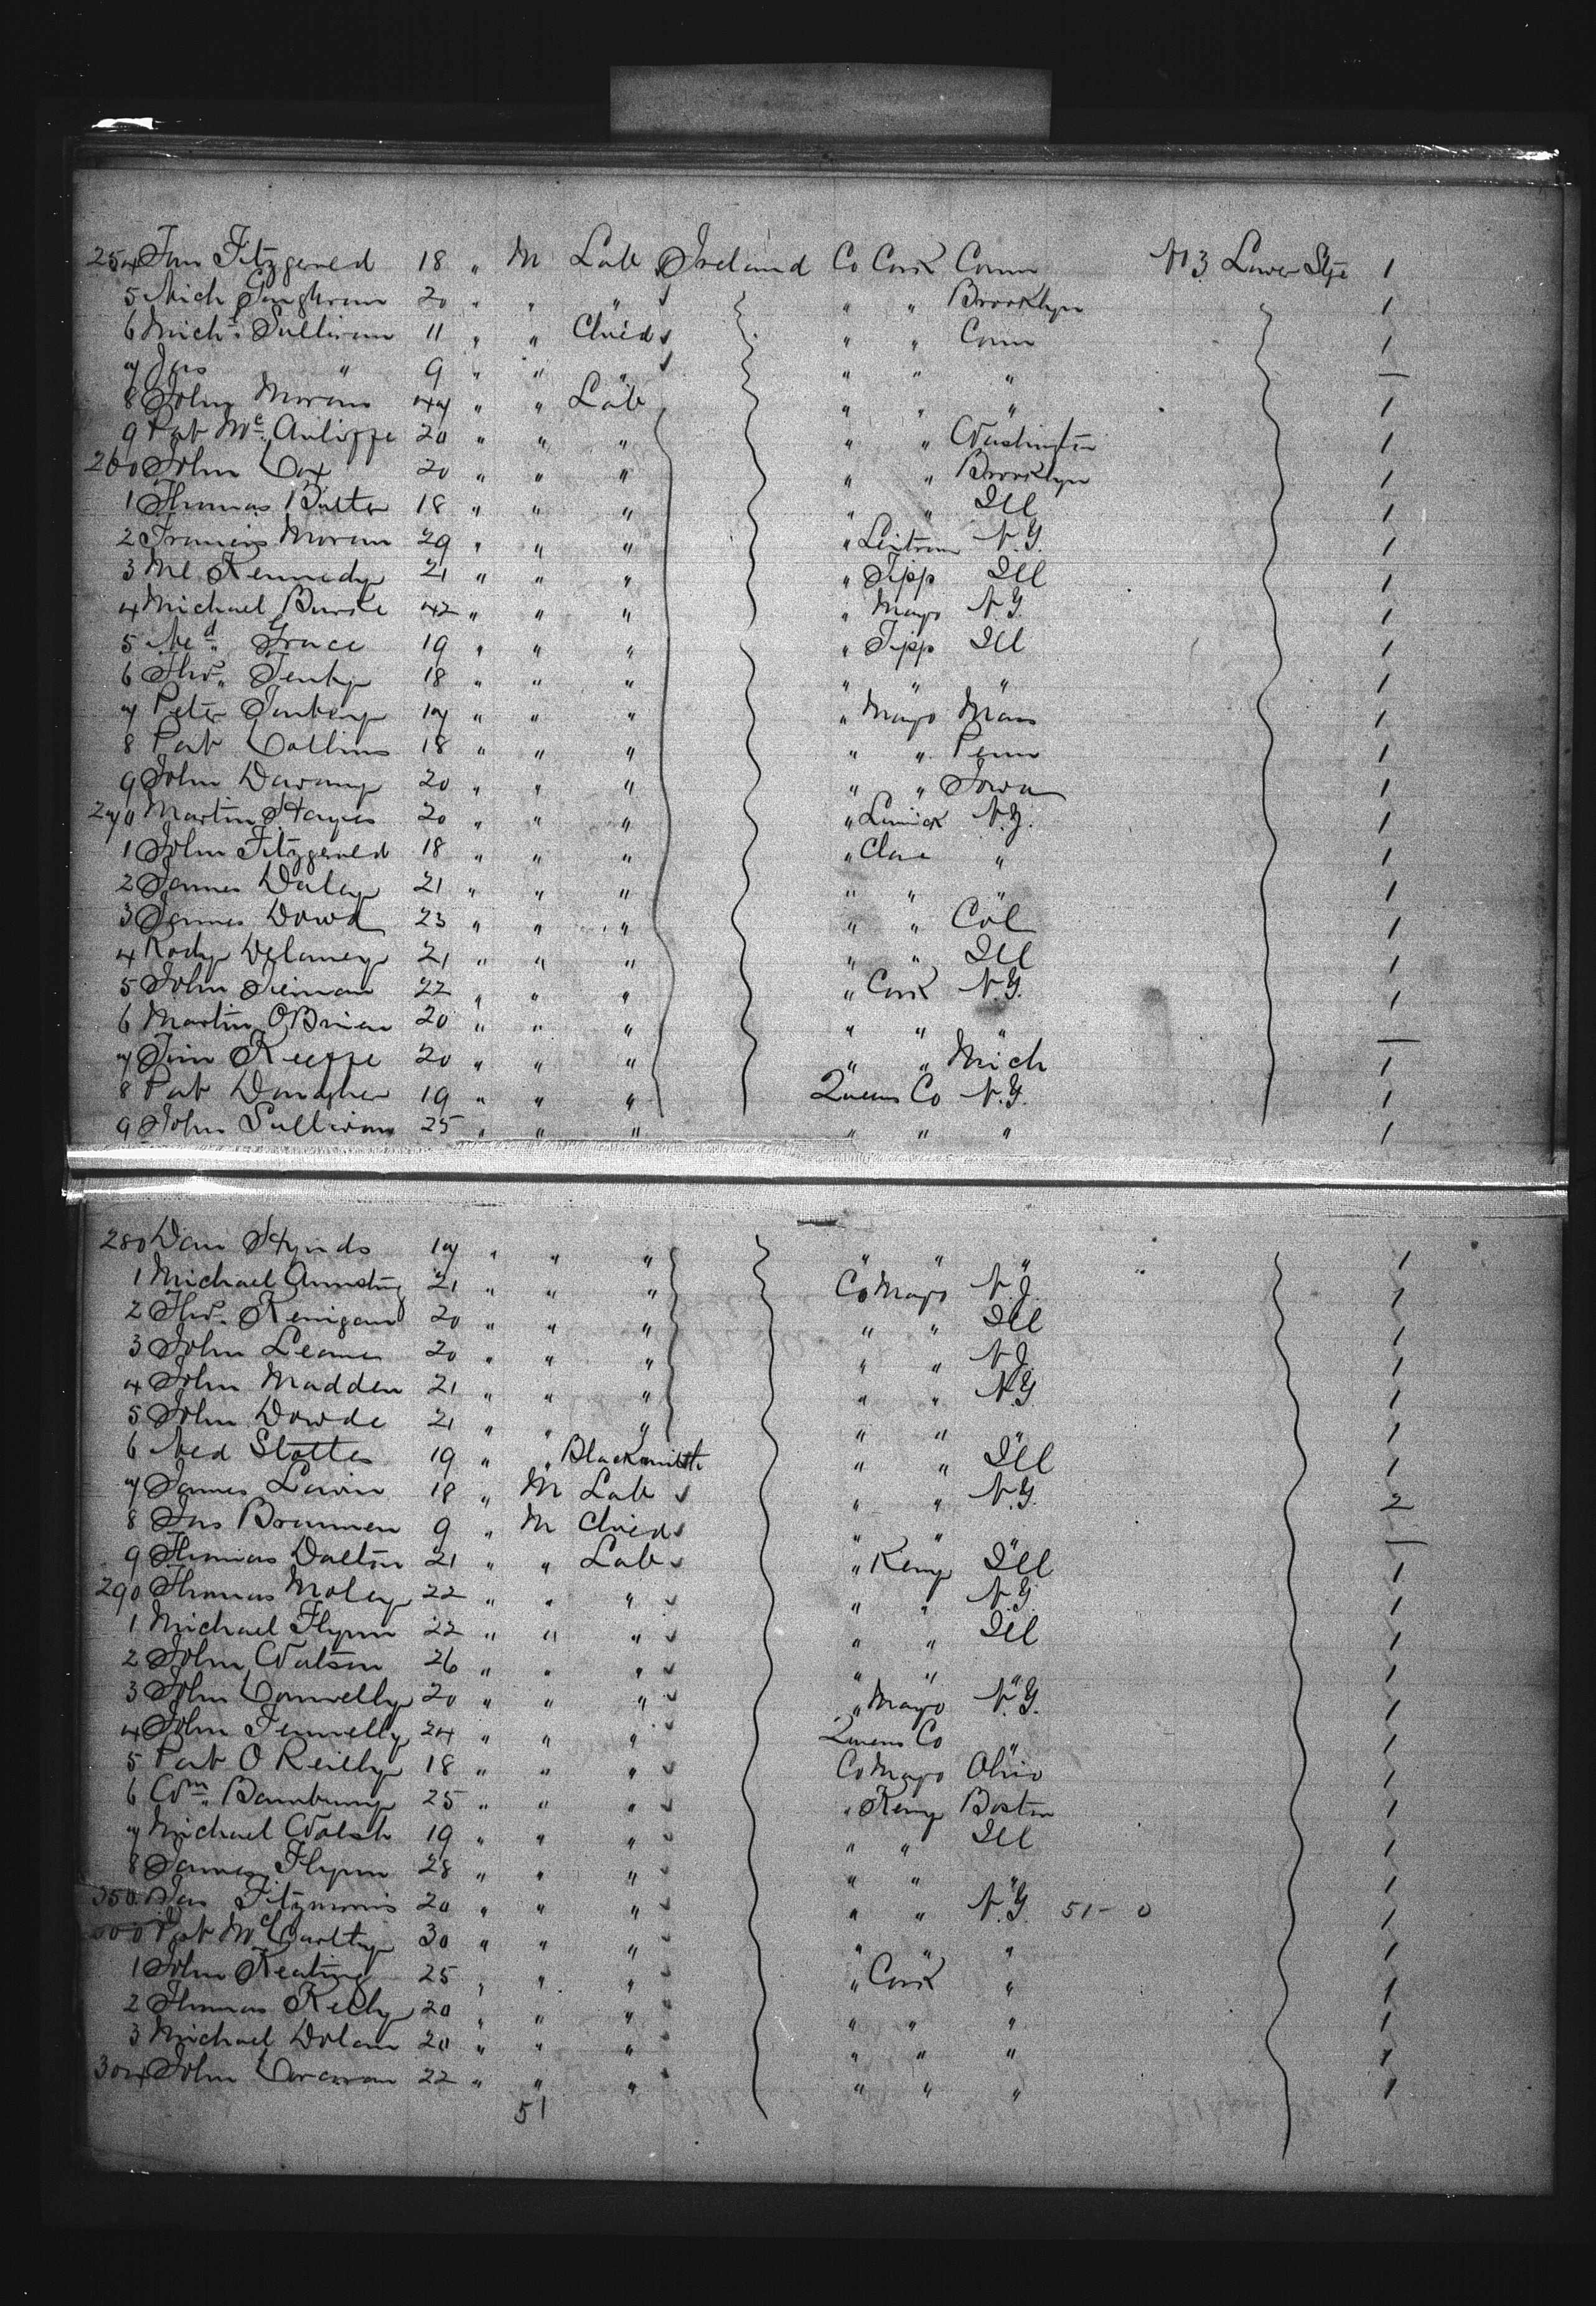 254 Jim Fitzgereld 18 " M Lab Ireland Co Cork Conn No 3 Lower Stge 1
5 Mich 20 " " " " " Brooklyn 1
6 Mich. Sullivan 11 " " Chied " " Conn 1
7 Jas " 9 " " " " " " —
8 John Moran 47 " " Lab " " " 1
9 Pat Mc Auliffe 20 " " " " " Washington 1
260 John Cox 20 " " " " " Brooklyn 1
1 Thomas Butler 18 " " " " " Ill 1
2 Francis Moran 29 " " " " Leitrim N.Y. 1
3 Ml Kennedy 21 " " " " Tipp Ill 1
4 Michael Burke 42 " " " " Mayo N.Y. 1
5 Ned Grace 19 " " " " Tipp Ill 1
6 Tho. 18 " " " " " " 1
7 Peter 17 " " " " Mayo Mass 1
8 Pat Collins 18 " " " " " Penn 1
9 John 20 " " " " " Iowa 1
270 Martin Hayes 20 " " " " Limick N.Y. 1
1 John Fitzgereld 18 " " " " Clare " 1
2 James Daley 21 " " " " " " 1
3 James Dowd 23 " " " " " Col 1
4 Rody Delaney 21 " " " " " Ill 1
5 John 22 " " " " Cork N.Y. 1
6 Martin OBrien 20 " " " " " " —
7 Jim Keeffe 20 " " " " " Mich 1
8 Pat Donagher 19 " " " Queens Co N.Y. 1
9 John Sullivan 25 " " " " " " 1
280 Dan Hynds 17 " " " " " " 1
1 Michael Armstng 21 " " " Co Mayo N.J. 1
2 Tho. Kerrigan 20 " " " " " Ill 1
3 John 20 " " " " " N.J. 1
4 John Madden 21 " " " " " N.Y. 1
5 John Dowde 21 " " " " " " 1
6 Ned 19 " " Blacksmith " " Ill 1
7 James Lavin 18 " M Lab " " N.Y. 2
8 Jas Brannen 9 " M Chied " " " —
9 Thomas Dalton 21 " " Lab " Kerry Ill 1
290 Thomas Moley 22 " " " " " N.Y. 1
1 Michael Flynn 22 " " " " " Ill 1
2 John Watson 26 " " " " " " 1
3 John Connelly 20 " " " " Mayo N.Y. 1
4 John Fennelly 24 " " " Queens Co " 1
5 Pat O Reilly 18 " " " Co Mayo Ohio 1
6 Wm. 25 " " " " Kerry Boston 1
7 Michael Walsh 19 " " " " " Ill 1
8 James Flynn 28 " " " " " " 1
350 Jas 20 " " " " " N.Y. 51 - 0 1
300 Pat McCarthy 30 " " " " " " 1
1 John Keating 25 " " " " Cork " 1
2 Thomas Kelly 20 " " " " " " 1
3 Michael Dolan 20 " " " " " " 1
304 John Corcoran 22 " " " " " " 1
51